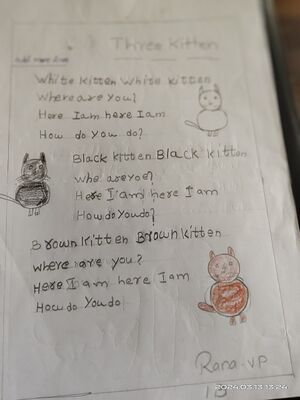 Three Kitten
White Kitten White Kitten
Where are you?
Here I am here I am
How do you do?
Black kitten Black kitten
whe are yoe?
Here I am here I am
How do You do?
Brown Kitten Brown kitten
where are you?
Here I am here I am
How do You do
Rana.VP
1B
2024.03.13 13:24